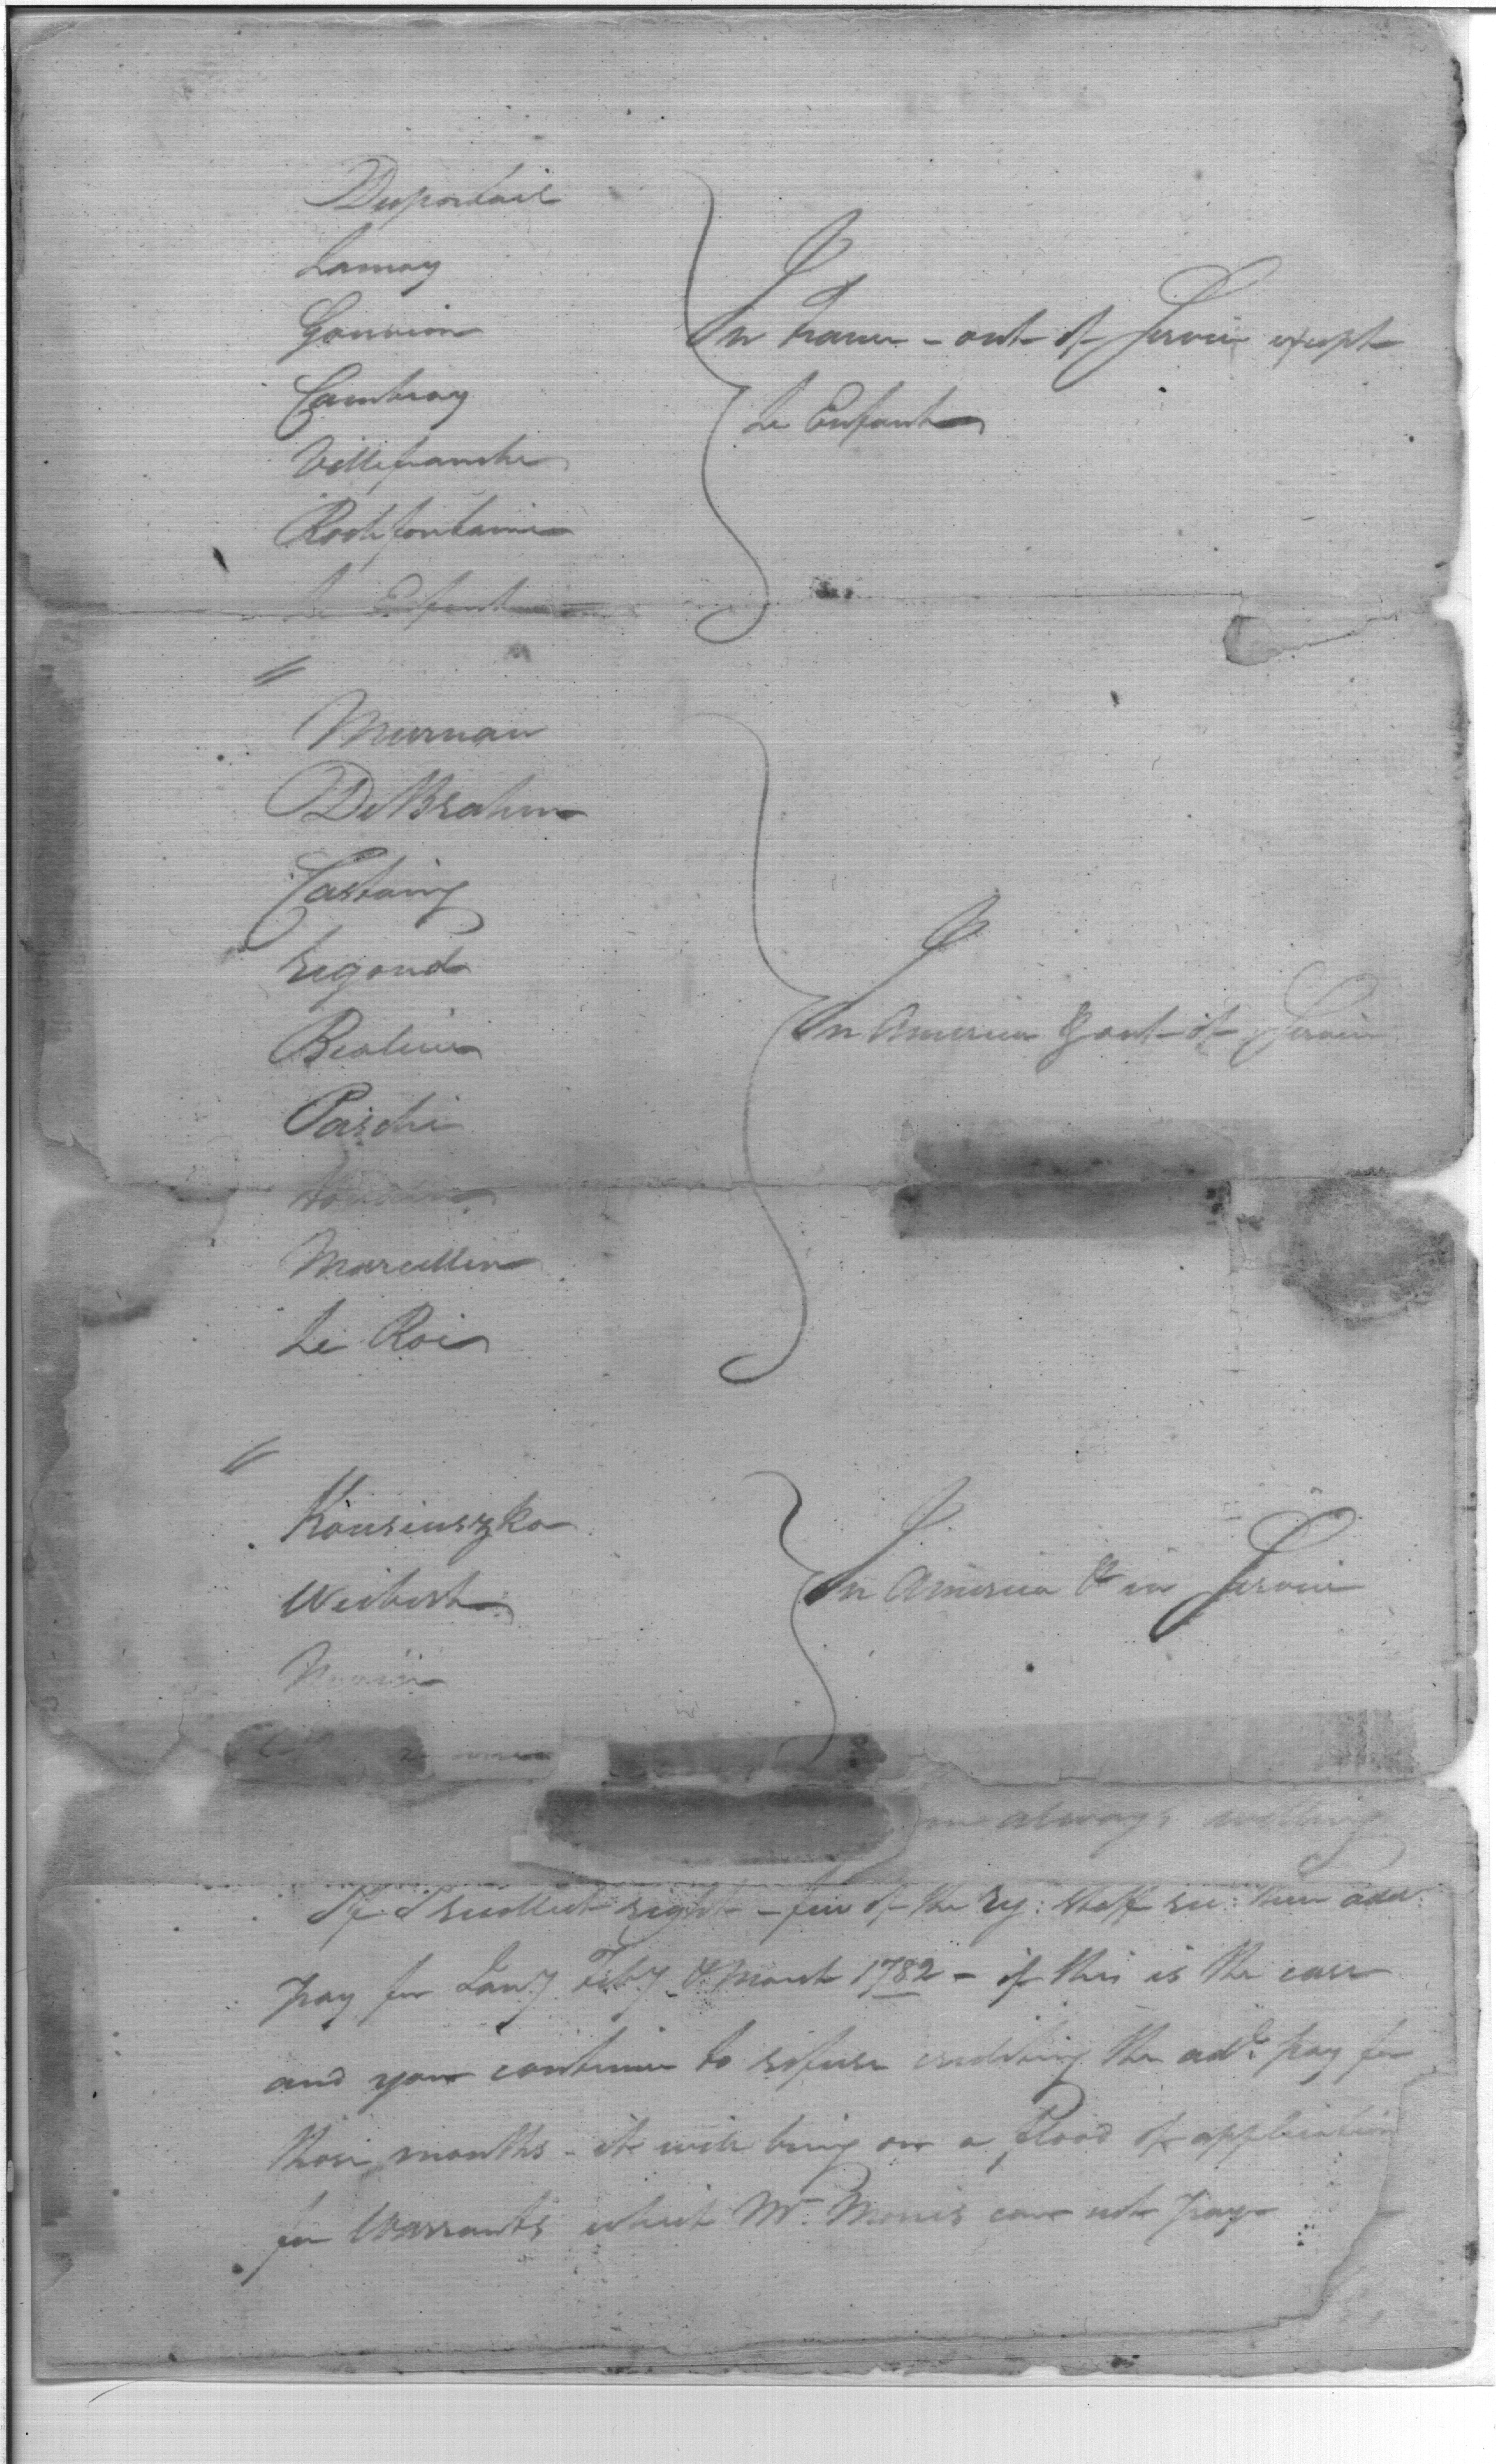 Duportail
Lamoy
Gouvion
Cambray
Villefranche
Rochfontaine
Le Enfant
In France - out of Service except
Le Enfant
Murnan
DeBrahm
Castaing
Segond
Beaulieu
Paschi
Marcellin
Le Roi
In America & out of Service
Kousiuszko
Weibert
In America & in Service
always willing
If I recollect right - few of the reg: staff rec: their add:
pay for Jany Feby & March 1782 - if this is the case
and you continue to refuse crediting the add. pay for
those months - it will bring on a flood of application
for Warrants which Mr. Morris can not pay